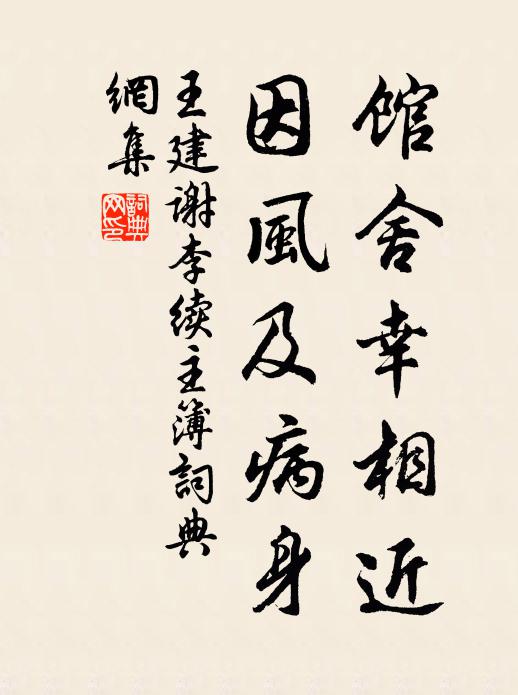 馆舍幸相近
因風及病身
王建谢李续主簿詞典
網集
詞典
网印